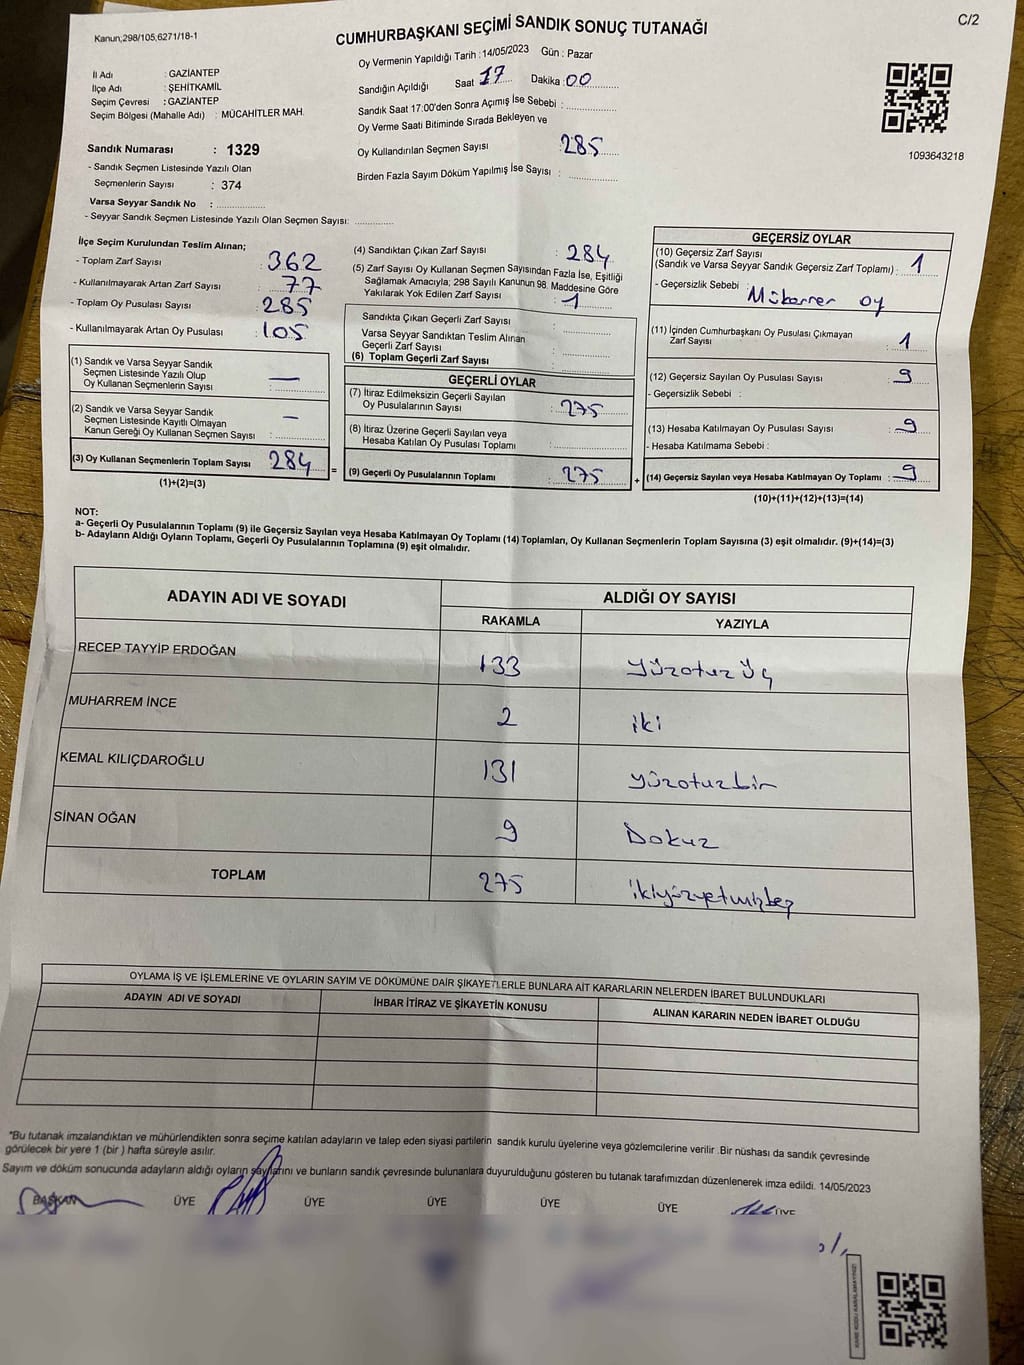 C/2
Kanun,298/105,6271/18-1
CUMHURBAŞKANI SEÇİMİ SANDIK SONUÇ TUTANAĞI
Oy Vermenin Yapıldığı Tarih : 14/05/2023 Gün : Pazar
İl Adı : GAZİANTEP
İlçe Adı : ŞEHİTKAMİL
Seçim Çevresi : GAZİANTEP
Seçim Bölgesi (Mahalle Adı) : MÜCAHİTLER MAH.
Sandığın Açıldığı Saat 17 Dakika : 00
Sandık Saat 17:00'den Sonra Açımış İse Sebebi :
Oy Verme Saati Bitiminde Sırada Bekleyen ve
Oy Kullandırılan Seçmen Sayısı : 285
Birden Fazla Sayım Döküm Yapılmış İse Sayısı :
1093643218
Sandık Numarası : 1329
- Sandık Seçmen Listesinde Yazılı Olan
Seçmenlerin Sayısı : 374
Varsa Seyyar Sandık No :
- Seyyar Sandık Seçmen Listesinde Yazılı Olan Seçmen Sayısı:
İlçe Seçim Kurulundan Teslim Alınan;
- Toplam Zarf Sayısı : 362
- Kullanılmayarak Artan Zarf Sayısı : 77
- Toplam Oy Pusulası Sayısı : 285
- Kullanılmayarak Artan Oy Pusulası : 105
(1) Sandık ve Varsa Seyyar Sandık
Seçmen Listesinde Yazılı Olup
Oy Kullanan Seçmenlerin Sayısı : —
(2) Sandık ve Varsa Seyyar Sandık
Seçmen Listesinde Kayıtlı Olmayan
Kanun Gereği Oy Kullanan Seçmen Sayısı : —
(3) Oy Kullanan Seçmenlerin Toplam Sayısı 284
(1)+(2)=(3)
=
(4) Sandıktan Çıkan Zarf Sayısı : 284
(5) Zarf Sayısı Oy Kullanan Seçmen Sayısından Fazla İse, Eşitliği
Sağlamak Amacıyla; 298 Sayılı Kanunun 98. Maddesine Göre
Yakılarak Yok Edilen Zarf Sayısı : 1
Sandıkta Çıkan Geçerli Zarf Sayısı :
Varsa Seyyar Sandıktan Teslim Alınan
Geçerli Zarf Sayısı :
(6) Toplam Geçerli Zarf Sayısı :
GEÇERLİ OYLAR
(7) İtiraz Edilmeksizin Geçerli Sayılan
Oy Pusulalarının Sayısı : 275
(8) İtiraz Üzerine Geçerli Sayılan veya
Hesaba Katılan Oy Pusulası Toplamı :
(9) Geçerli Oy Pusulalarının Toplamı : 275
+
GEÇERSİZ OYLAR
(10) Geçersiz Zarf Sayısı
(Sandık ve Varsa Seyyar Sandık Geçersiz Zarf Toplamı) : 1
- Geçersizlik Sebebi : Mükerrer oy
(11) İçinden Cumhurbaşkanı Oy Pusulası Çıkmayan
Zarf Sayısı : 1
(12) Geçersiz Sayılan Oy Pusulası Sayısı : 9
- Geçersizlik Sebebi :
(13) Hesaba Katılmayan Oy Pusulası Sayısı : 9
- Hesaba Katılmama Sebebi :
(14) Geçersiz Sayılan veya Hesaba Katılmayan Oy Toplamı : 9
(10)+(11)+(12)+(13)=(14)
NOT:
a- Geçerli Oy Pusulalarının Toplamı (9) ile Geçersiz Sayılan veya Hesaba Katılmayan Oy Toplamı (14) Toplamları, Oy Kullanan Seçmenlerin Toplam Sayısına (3) eşit olmalıdır. (9)+(14)=(3)
b- Adayların Aldığı Oyların Toplamı, Geçerli Oy Pusulalarının Toplamına (9) eşit olmalıdır.
ADAYIN ADI VE SOYADI ALDIĞI OY SAYISI
RAKAMLA YAZIYLA
RECEP TAYYİP ERDOĞAN 133 Yüzotuz Üç
MUHARREM İNCE 2 iki
KEMAL KILIÇDAROĞLU 131 yüzotuzbir
SİNAN OĞAN 9 Dokuz
TOPLAM 275 ikiyüzyetmişbeş
OYLAMA İŞ VE İŞLEMLERİNE VE OYLARIN SAYIM VE DÖKÜMÜNE DAİR ŞİKAYETLERLE BUNLARA AİT KARARLARIN NELERDEN İBARET BULUNDUKLARI
ADAYIN ADI VE SOYADI İHBAR İTİRAZ VE ŞİKAYETİN KONUSU ALINAN KARARIN NEDEN İBARET OLDUĞU
"Bu tutanak imzalandıktan ve mühürlendikten sonra seçime katılan adayların ve talep eden siyasi partilerin sandık kurulu üyelerine veya gözlemcilerine verilir .Bir nüshası da sandık çevresinde
görülecek bir yere 1 (bir ) hafta süreyle asılır.
Sayım ve döküm sonucunda adayların aldığı oyların sayılarını ve bunların sandık çevresinde bulunanlara duyurulduğunu gösteren bu tutanak tarafımızdan düzenlenerek imza edildi. 14/05/2023
BAŞKAN ÜYE ÜYE ÜYE ÜYE ÜYE ÜYE